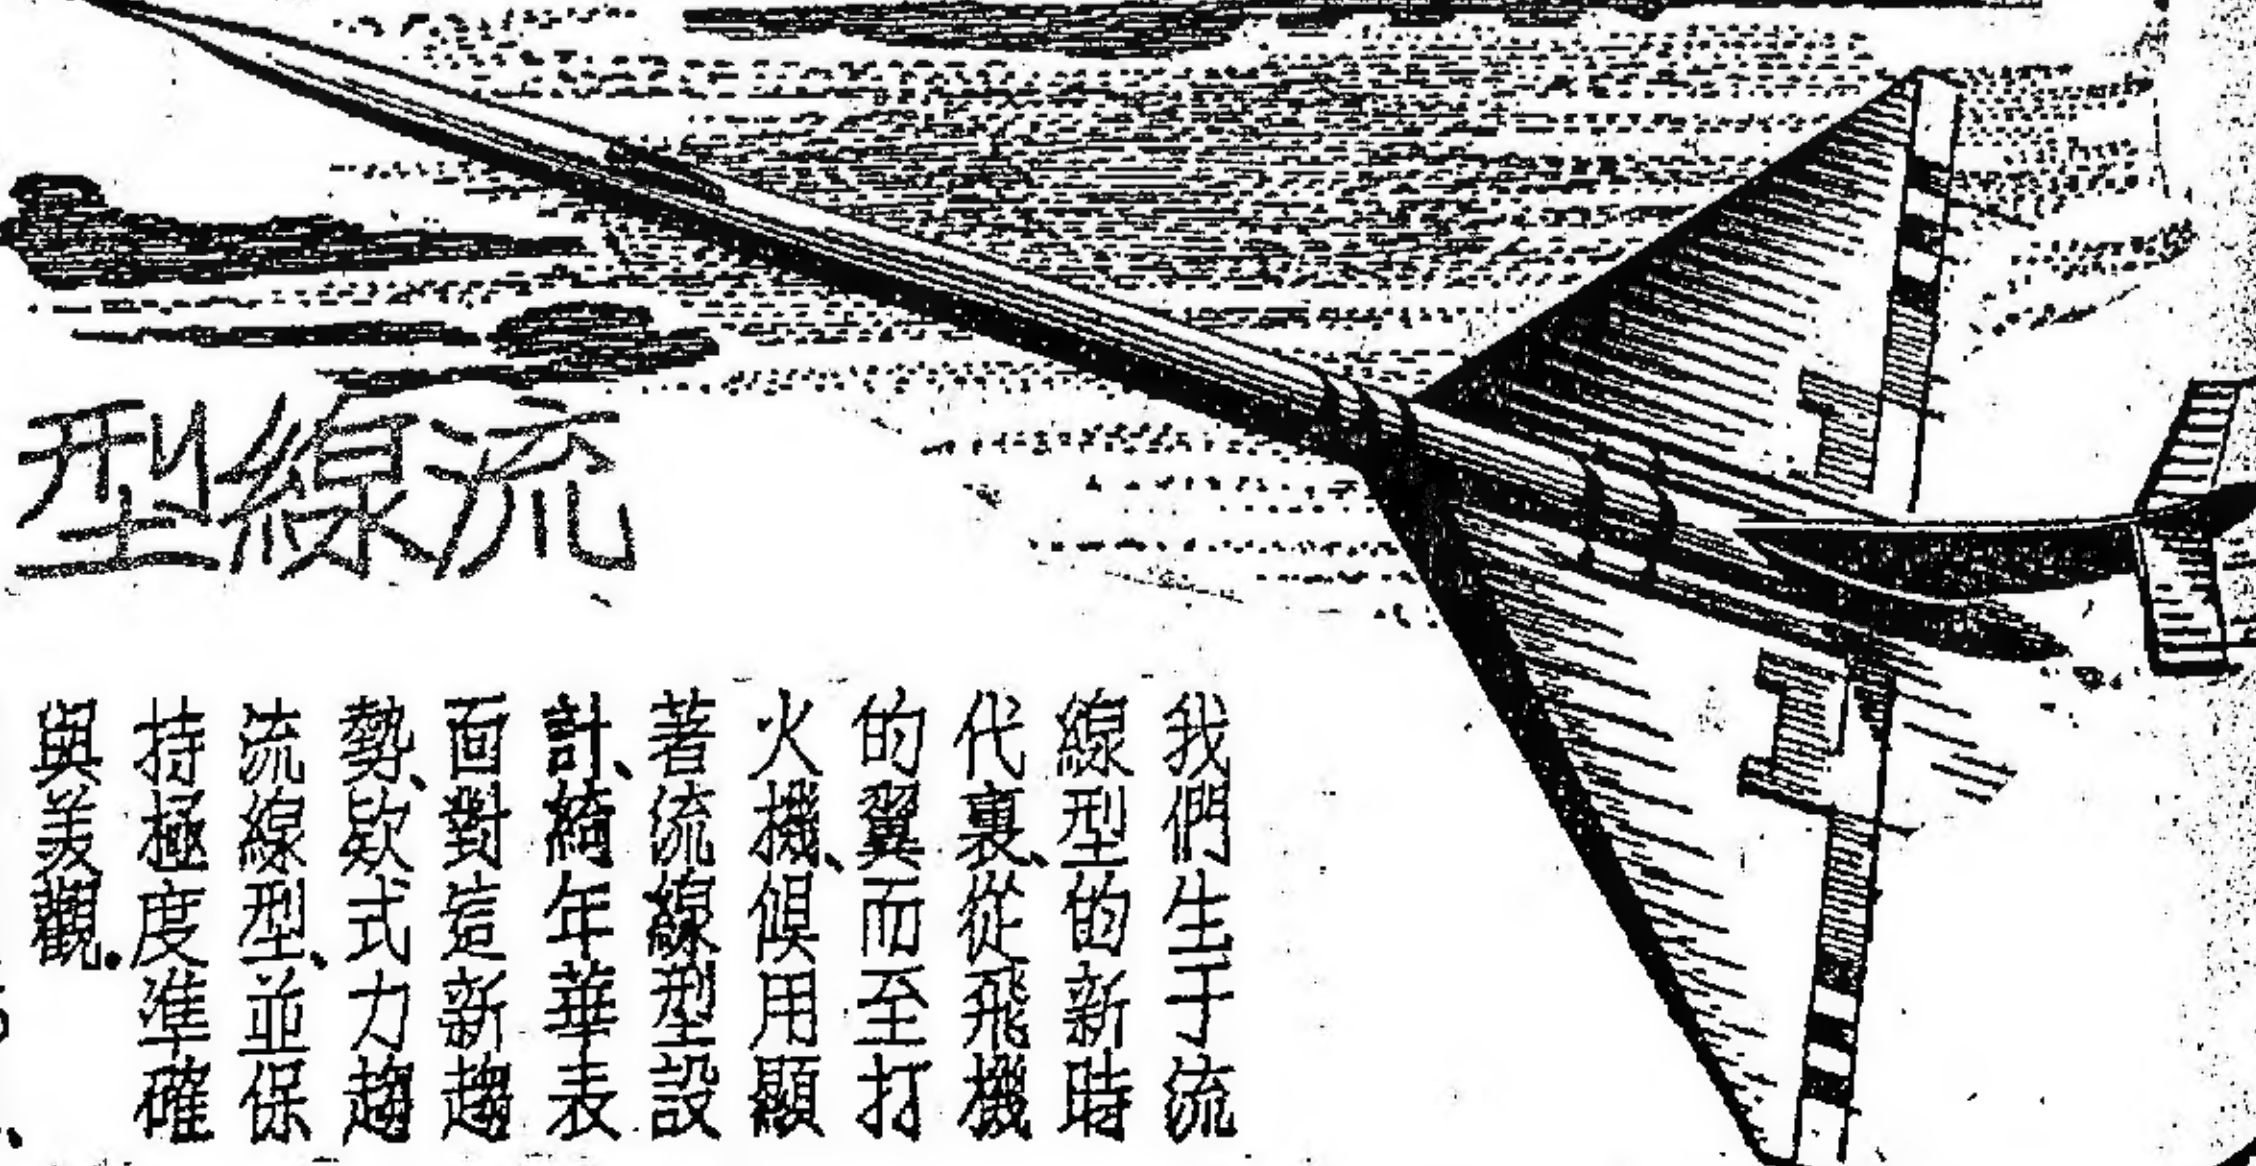 流線型
我們生于流
線型的新時
代裏、從飛機
的翼而至打
火機、俱用顯
著流線型設
計、綺年華表
面對這新趨
勢、欵式力趨
流線型、並保
持極度準確
與美觀.